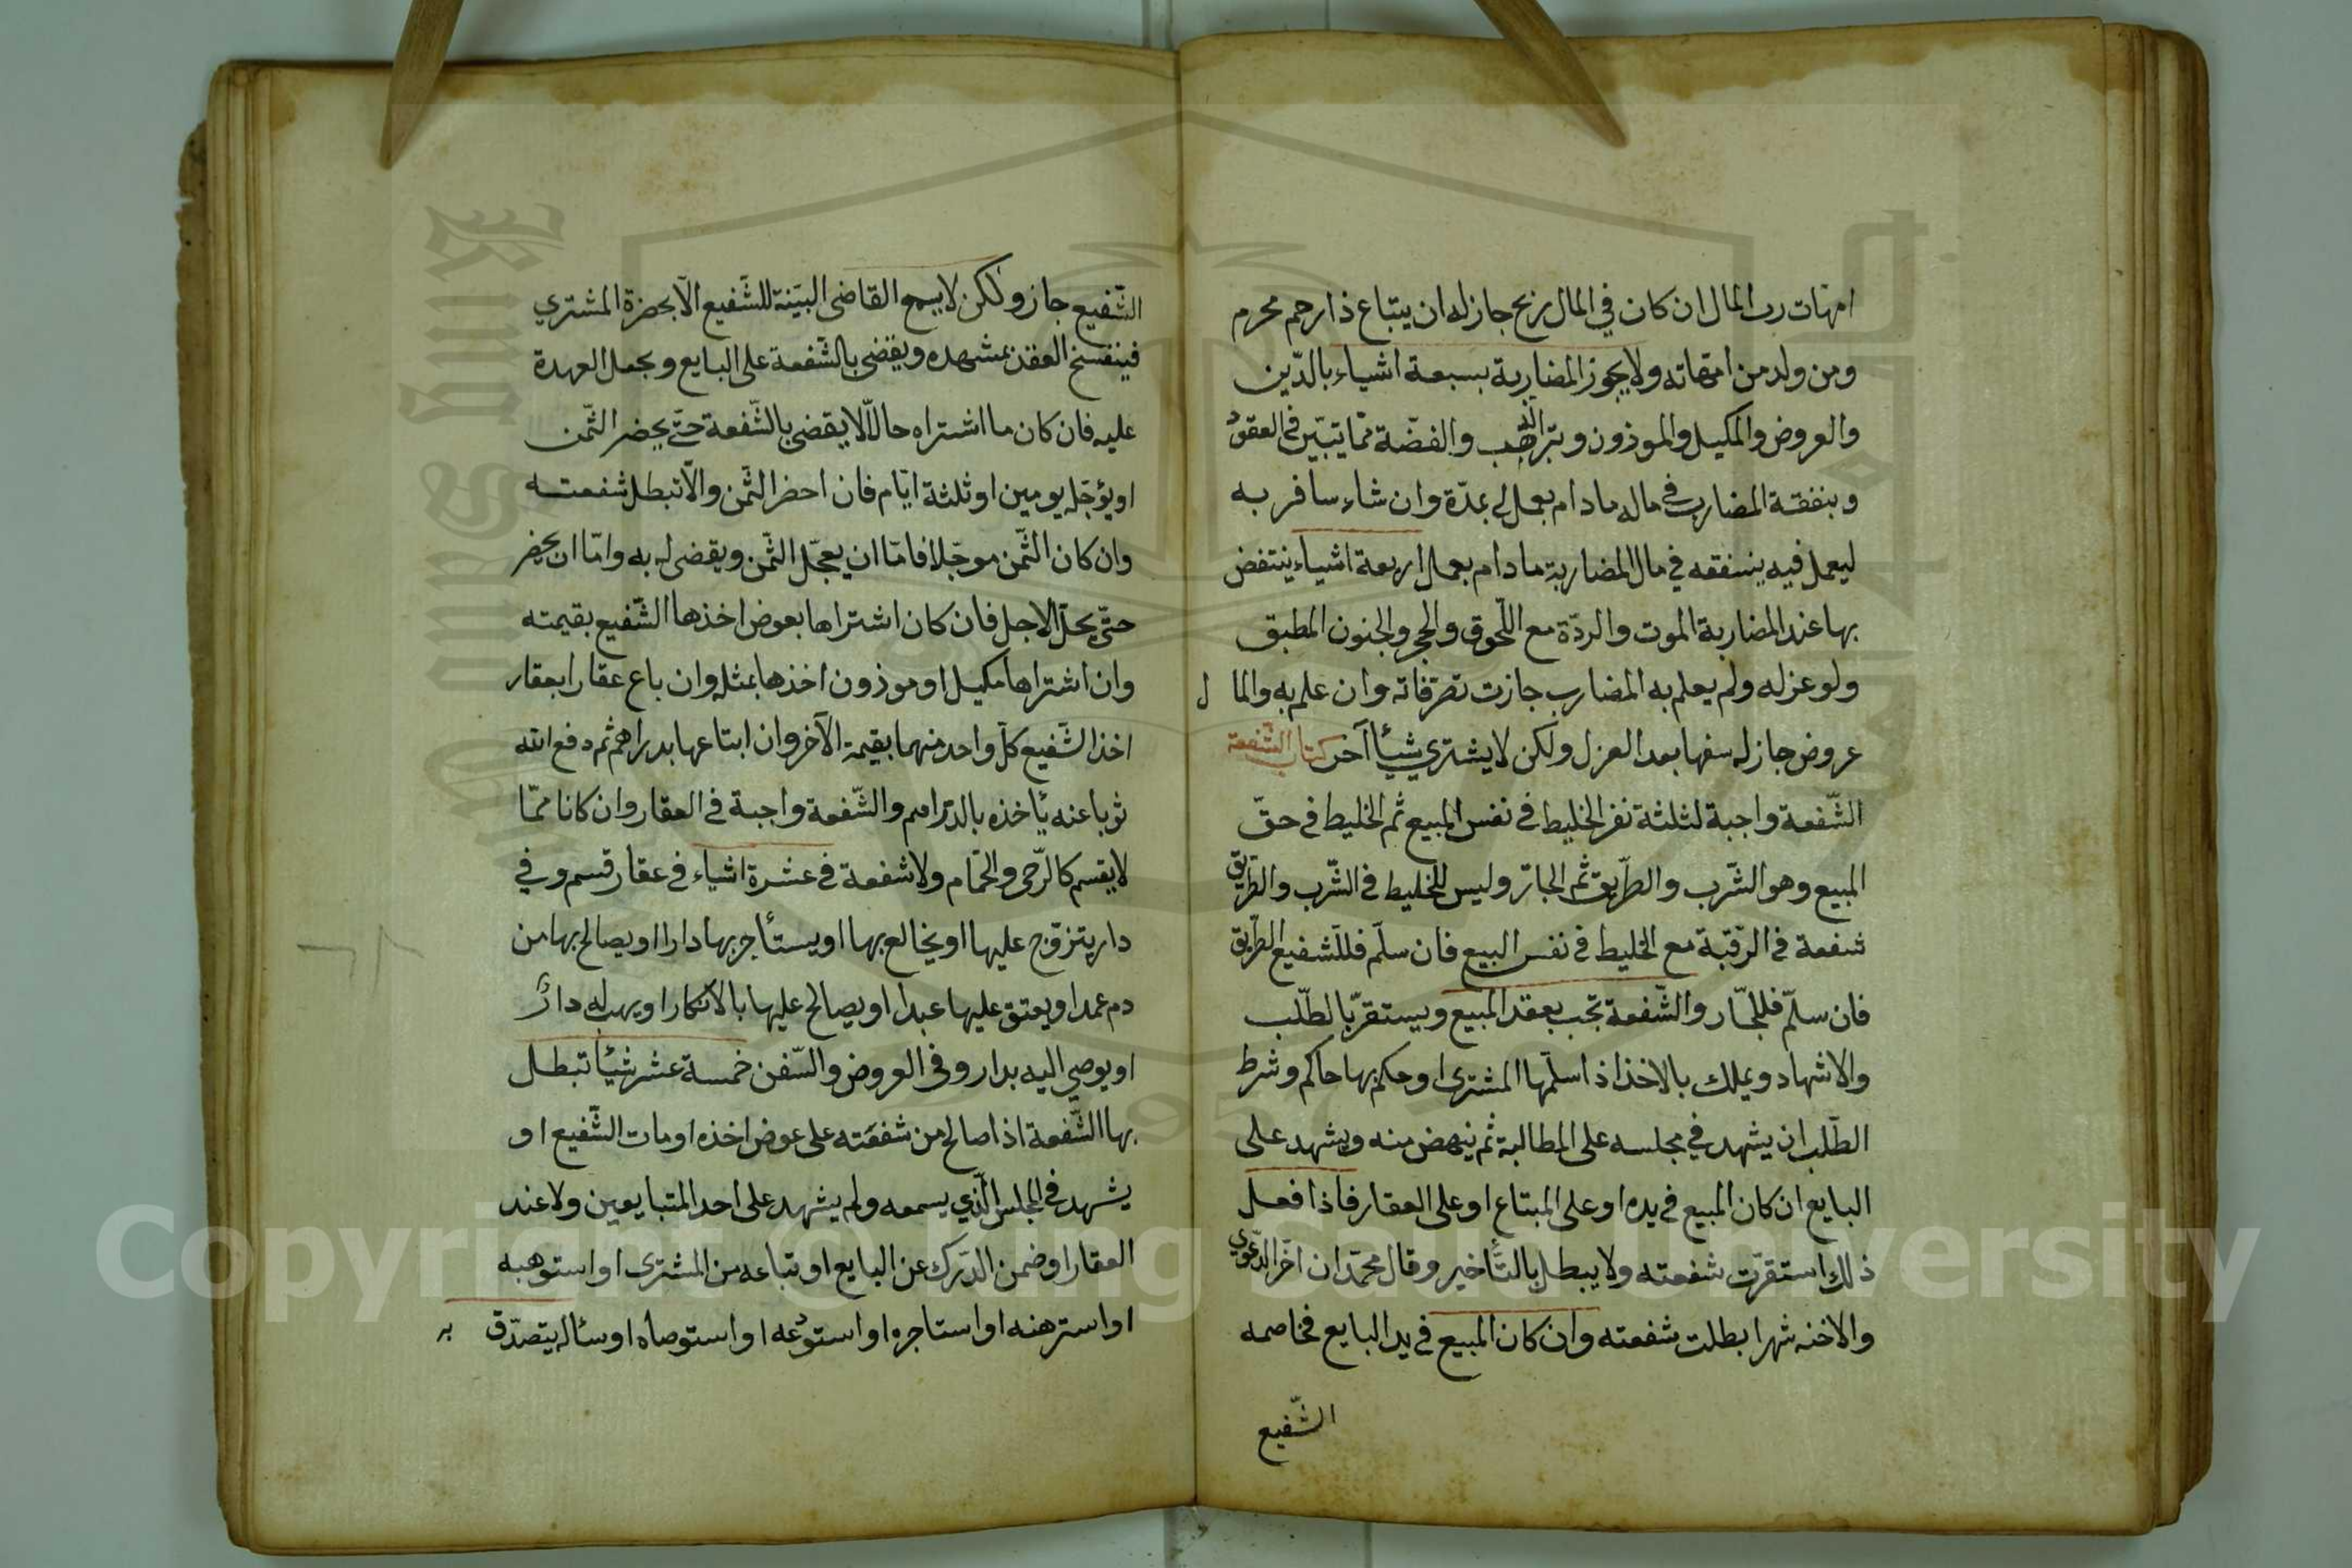 امهات رب المال ان كان في المال ربح جاز له ان يبتاع ذا رحم محرم
ومن ولد من امهاته ولا يجوز المضاربة بسبعة اشياء بالدّين
والعروض والمكيل والموزون وبتر الذهب والفضّة ممّا يتبيّن في العقود
وبنفقة المضارب في ماله مادام يعمل له بمدّة وان شاء سافر به
ليعمل فيه ينسفقه في مال المضاربة مادام يعمل اربعة اشياء ينتقض
بها عند المضاربة الموت والردّة مع اللّحوق والحجر والجنون المطبق
ولو عزله ولم يعلم به المضارب جازت تصرّفاته وان علم به والمال
عروض جاز له بيعها بعد العزل ولكن لا يشتري شيأ آخر كتاب الشّفعة
الشّفعة واجبة لثلثة نفر الخليط في نفس المبيع ثم الخليط في حقّ
المبيع وهو الشّرب والطّريق ثم الجارّ وليس للخليط في الشّرب والطّريق
شفعة في الرّقبة مع الخليط في نفس البيع فان سلّم فللشفيع الطّريق
فان سلّم فللجّار والشّفعة تجب بعقد المبيع ويستقرّ بالطلّب
والاشهاد ويملك بالاخذ اذا سلّمها المشترى او حكم بها حاكم وشرط
الطّلب ان يشهد في مجلسه على المطالبة ثم ينهض منه ويشهد على
البايع ان كان المبيع في يده او على المبتاع او على العقار فاذا فعل
ذلك استقرّت شفعته ولا يبطل بالتّأخير وقال محمّد ان اخّر الدّعوي
والاخذ شهرا بطلت شفعته وان كان المبيع في يد البايع فخاصمه
الشّفيع
الشّفيع جاز ولكن لا يسمع القاضى البيّنة للشّفيع الّا بحضرة المشتري
فينفسخ العقد بمشهده ويقضى بالشّفعة على البايع ويجعل العهدة
عليه فان كان ما اشتراه حالّا لا يقضى بالشّفعة حتّى يحضر الثّمن
او يؤجّله يومين او ثلثة ايّام فان احضر الثّمن والّا تبطل شفعته
وان كان الثّمن موجّلا فامّا ان يعجّل الثّمن ويقضى له به وامّا ان يحضر
حتّى يحلّ الاجل فان كان اشتراها بعوض اخذها الشّفيع بقيمته
وان اشتراها مكيل او موزون اخذها بمثله وان باع عقارا بعقار
اخذ الشّفيع كلّ واحد منهما بقيمة الآخر وان ابتاعها بدراهم ثم دفع اليه
ثوبا عنه يأخذه بالدّراهم والشّفعة واجبة في العقار وان كانا ممّا
لا يقسم كالرّحى والحّمام ولا شفعة في عشرة اشياء في عقار قسم وفي
دار يتزوّج عليها او يخالع بها او يستأجر بها دارا او يصالح بها من
دم عمدا ويعتق عليها عبدا او يصالح عليها بالانكار او يهب له دارٌ
او يوصي اليه بدار وفى العروض والسّفن خمسة عشر شيأ تبطل
بها الشّفعة اذا صالح من شفعَته على عوض اخذه او مات الشّفيع او
يشهد في المجلس الّذي يسمعه ولم يشهد على احد المتبايعين ولا عند
العقار او ضمن الدّرك عن البايع او تباعه من المشترى او استوهبه
او استرهنه او استاجره او استودعه او استوصاه او سأله يتصدّق به
Copyright © King Saud University